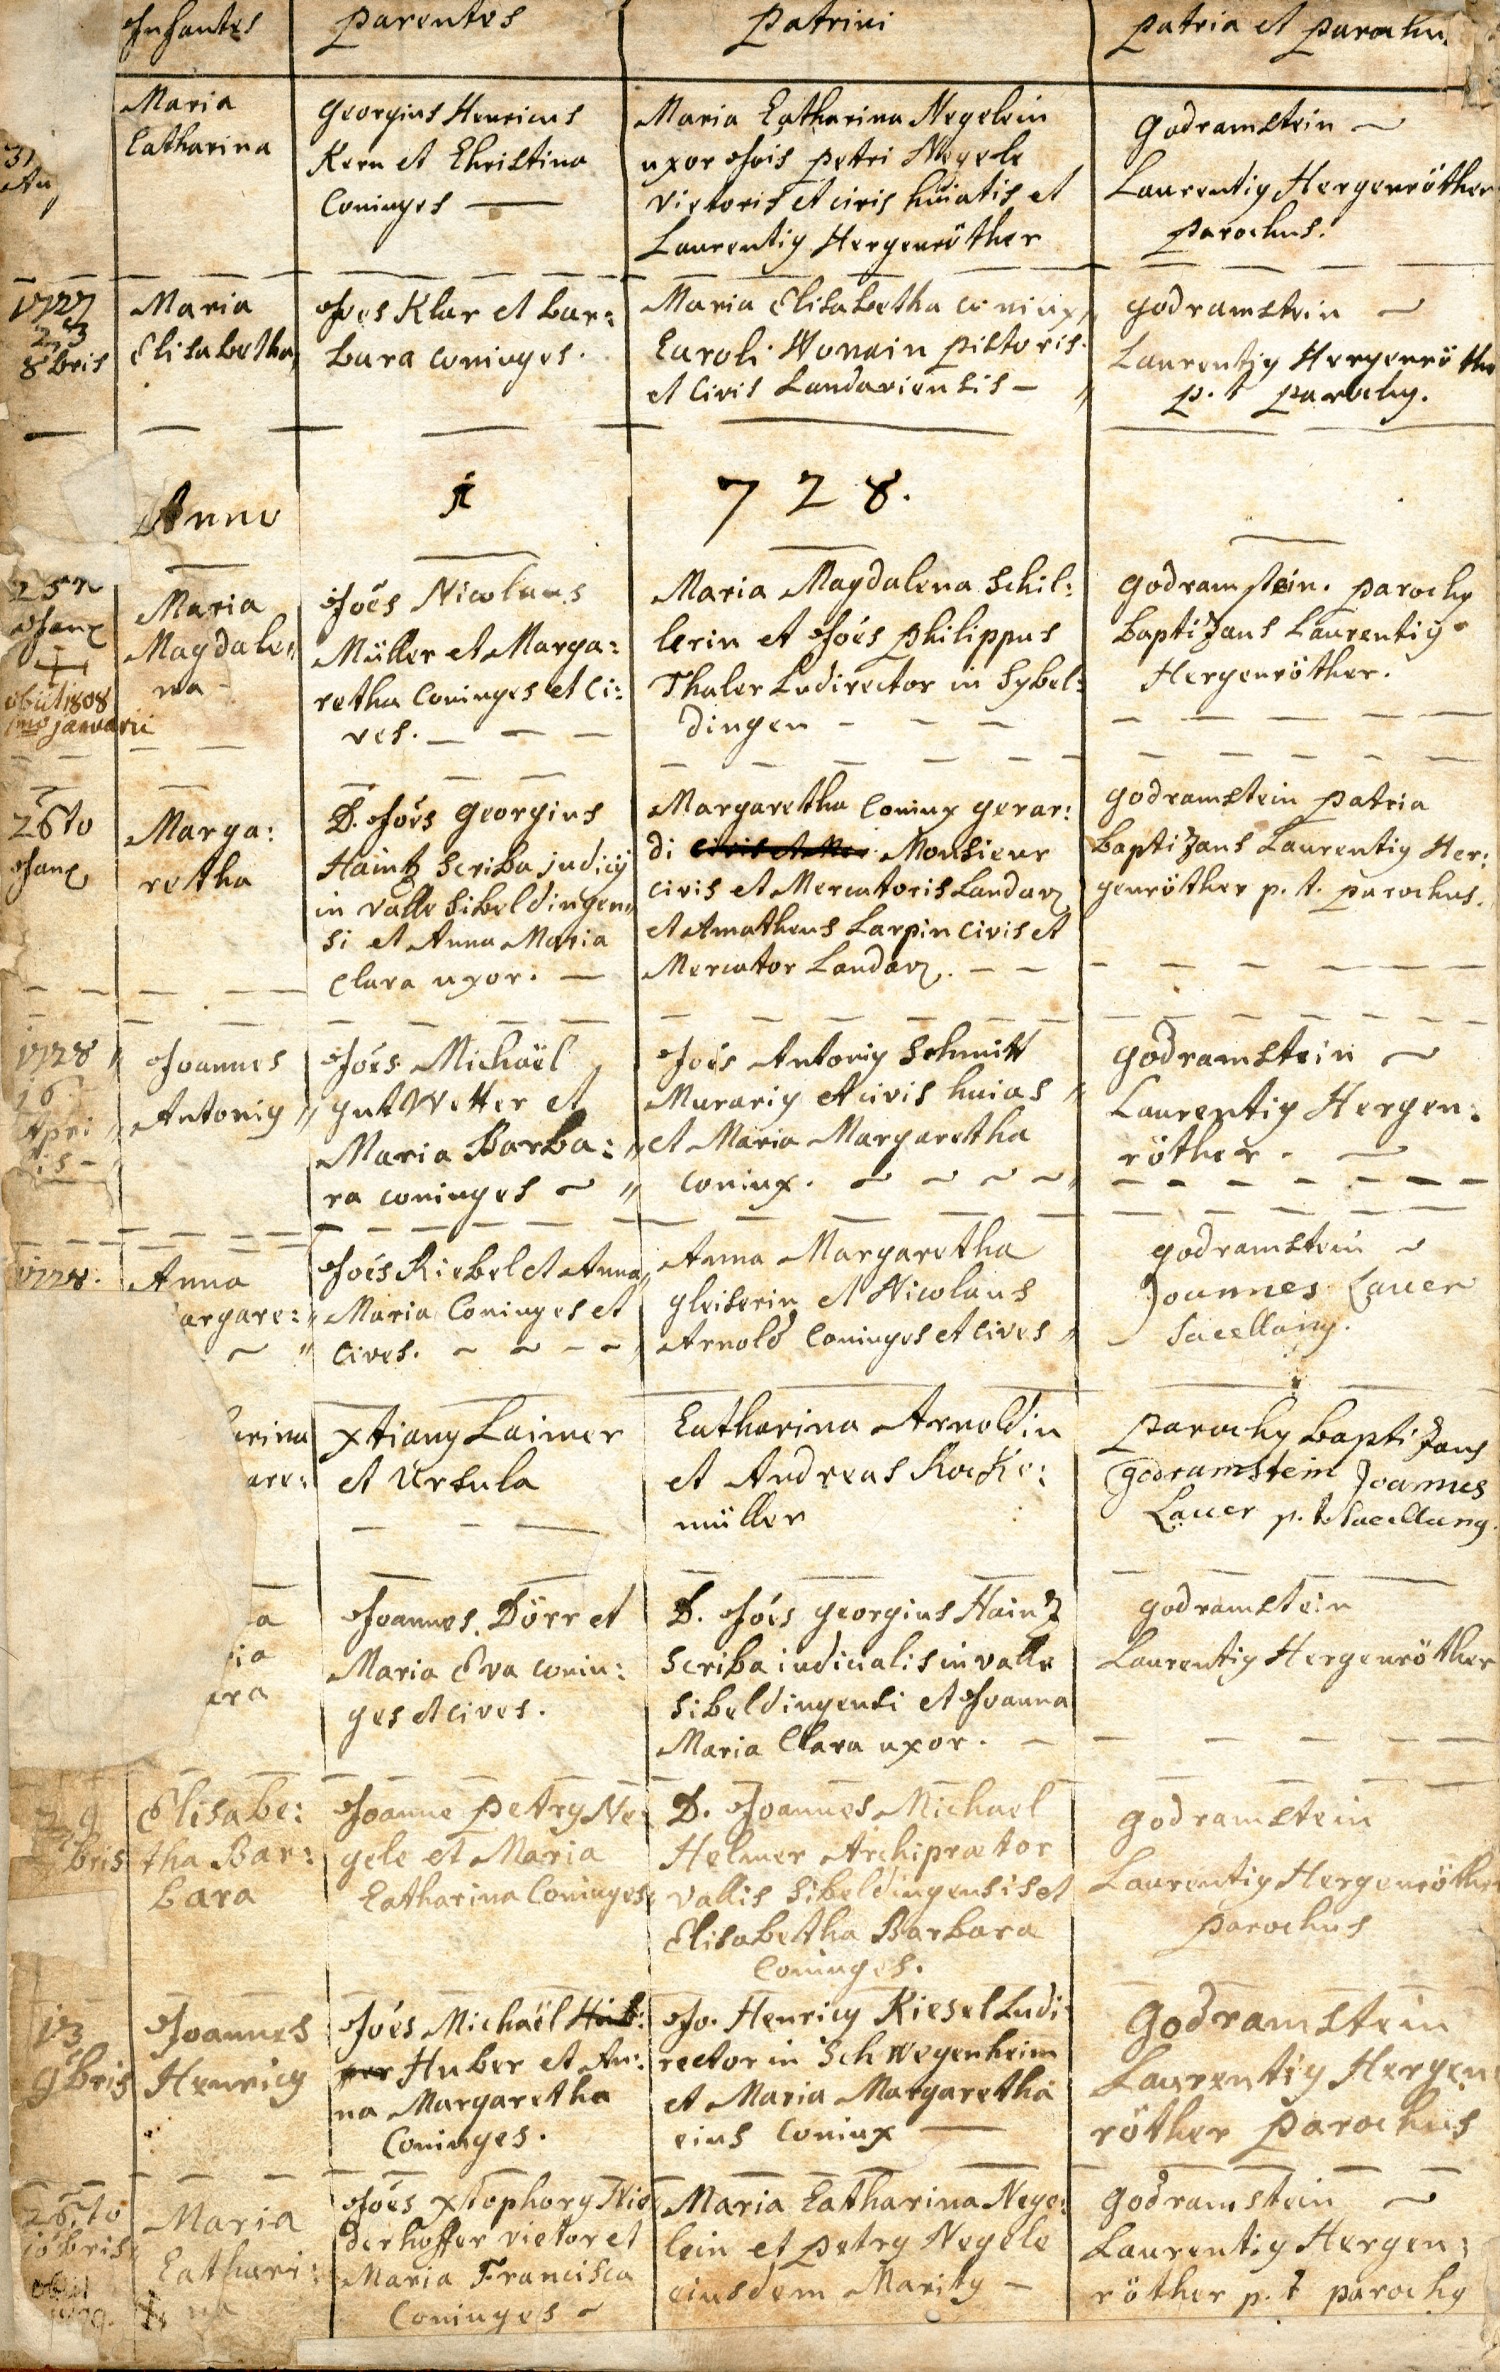 Infantes parentes patrini patria et parochus
31
Au
Maria
Catharina
Georgius Henricus
Kern et Christina
Coniuges
Maria Catharina Negelein
uxor Jois petri Negele
Vietoris et civis huiatis et
Laurentiy Hergenröther
Godramstein
Laurentiy Hergenröther
parochus.
1727
23
8bris
Maria
Elisabetha
Joes Klar et Bar:
bara coniuges.
Maria Elisabetha coniux
Caroli pistoris
et Civis Landaviensis
Godramstein
Laurentiy Hergenröther
p. t parochy.
Anno 1 7 2 8.
25
Janr
obiit 1808
1mo januarii
Maria
Magdale
na
Joes Nicolaus
Müller et Marga:
retha Coniuges et Ci:
ves.
Maria Magdalena Schil:
lerin et Joes Philippus
Thaler Ludirector in Sybel:
dingen
Godramstein. parochy
Baptizans Laurentiy
Hergenröther.
26to
Jan
Marga:
retha
D. Joes Georgius
Haintz Scriba judicij
in valle Sibeldingen
si et Anna Maria
Clara uxor.
Margaretha Coniux Gerar:
di civis et Mer Monsieur
civis et Mercatoris Landav
et Amatheus Larpin civis et
Mercator Landav.
Godramstein patria
Baptizans Laurentiy Her:
genröther p. t. parochus.
1728
16
Apri
lis
Joannes
Antoniy
Joes Michaël
Gutwetter et
Maria Barba:
ra coniuges
Joes Antoniy Schmitt
Murariy et civis huias
et Maria Margaretha
Coniux.
Godramstein
Laurentiy Hergen:
röther.
1728.
Anna
argare:
Joes Riebel et Anna
Maria Coniuges et
Cives.
Anna Margaretha
Gleiserin et Nicolaus
Arnold Coniuges et Cives
Godramstein
Joannes Lauer
Sacellany.
arina
are:
Xtiany Laimer
et Ursula
Catharina Arnoldin
et Andreas Rocke:
müller
Parochy Baptizans
Godramstein Joannes
Lauer p. t Sacellany.
a
ia
ara
Joannes Dörr et
Maria Eva Coniu:
ges et cives.
D. Joes Georgius Haintz
Scriba iudicialis in valle
Sibeldingensi et Joanna
Maria Clara uxor.
Godramstein
Laurentiy Hergenröther
29
bris
Elisabe:
tha Bar:
bara
Joanne Petry Ne
gele et Maria
Catharina Coniuges
D. Joannes Michael
Helmer Archipraetor
vallis Sibeldingensis et
Elisabetha Barbara
Coniuges.
Godramstein
Laurentiy Hergenröther
parochus
13
9bris
Joannes
Henricy
Joes Michaël
Huber et An:
na Margaretha
Coniuges.
Jo. Henricy Kiesel Ludi
rector in Schwegenheim
et Maria Margaretha
eius Coniux
Godramstein
Laurentiy Hergen
röther parochus
26to
10bris
obiit
Maria
Cathari:
na
Joes Xtophory Nie
derhoffer vietor et
Maria Francisca
Coniuges
Maria Catharina Nege:
lein et petry Negele
eiusdem Marity
Godramstein
Laurentiy Hergen:
röther p. t parochy